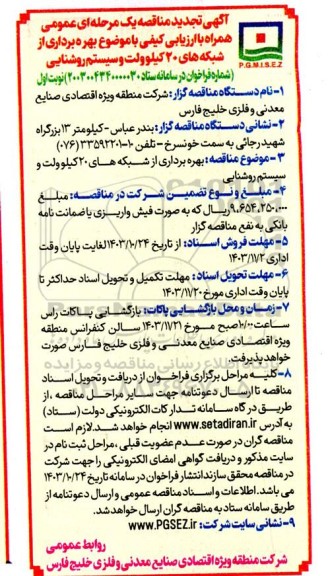 آگهی تجدید مناقصه یک مرحله ای عمومی
همراه با ارزیابی کیفی با موضوع بهره برداری از
شبکه های ۲۰ کیلو ولت و سیستم روشنایی
P.G.M.I.S.E.Z
(شماره فراخوان در سامانه ستاد ۲۰۰۳۰۰۴۳۴۰۰۰۰۰۳۰) نوبت اول
۱- نام دستگاه مناقصه گزار: شرکت منطقه ویژه اقتصادی صنایع
معدنی و فلزی خلیج فارس
۲- نشانی دستگاه مناقصه گزار: بندر عباس - کیلومتر ۱۳ بزرگراه
شهید رجائی به سمت خونسرخ - تلفن ۱۰-۳۳۵۹۲۲۰۱ (۰۷۶)
۳- موضوع مناقصه: بهره برداری از شبکه های ۲۰ کیلو ولت و
سیستم روشنایی
۴- مبلغ و نوع تضمین شرکت در مناقصه: مبلغ
۹،۶۵۴،۲۵۰،۰۰۰ ریال که به صورت فیش واریزی یا ضمانت نامه
بانکی به نفع مناقصه گزار
۵- مهلت فروش اسناد: از تاریخ ۱۴۰۳/۱۰/۲۴ لغایت پایان وقت
اداری ۱۴۰۳/۱۱/۲
۶- مهلت تحویل اسناد: مهلت تکمیل و تحویل اسناد حداکثر تا
پایان وقت اداری مورخ ۱۴۰۳/۱۱/۲۰
۷- زمان و محل بازگشایی پاکات: بازگشایی پاکات راس
ساعت ۱۰:۰۰ صبح مورخ ۱۴۰۳/۱۱/۲۱ سالن کنفرانس منطقه
ویژه اقتصادی صنایع معدنی و فلزی خلیج فارس صورت
خواهد پذیرفت.
۸- کلیه مراحل برگزاری فراخوان از دریافت و تحویل اسناد
مناقصه تا ارسال دعوتنامه جهت سایر مراحل مناقصه، از
طریق درگاه سامانه تدارکات الکترونیکی دولت (ستاد)
به آدرس www.setadiran.ir انجام خواهد شد. لازم است
مناقصه گران در صورت عدم عضویت قبلی، مراحل ثبت نام در
سایت مذکور و دریافت گواهی امضای الکترونیکی را جهت شرکت
در مناقصه محقق سازند انتشار فراخوان در سامانه تاریخ ۱۴۰۳/۱۰/۲۴
می باشد. اطلاعات و اسناد مناقصه عمومی و ارسال دعوتنامه از
طریق سامانه ستاد به مناقصه گران ارسال خواهد شد.
۹- نشانی سایت شرکت: www.PGSEZ.ir
روابط عمومی
شرکت منطقه ویژه اقتصادی صنایع معدنی و فلزی خلیج فارس